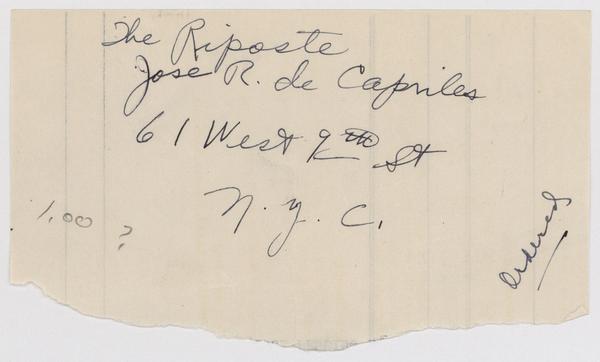 The Riposte
Jose R. de Capriles
61 West 9th St
N.Y.C.
1.00 ?
Ordered